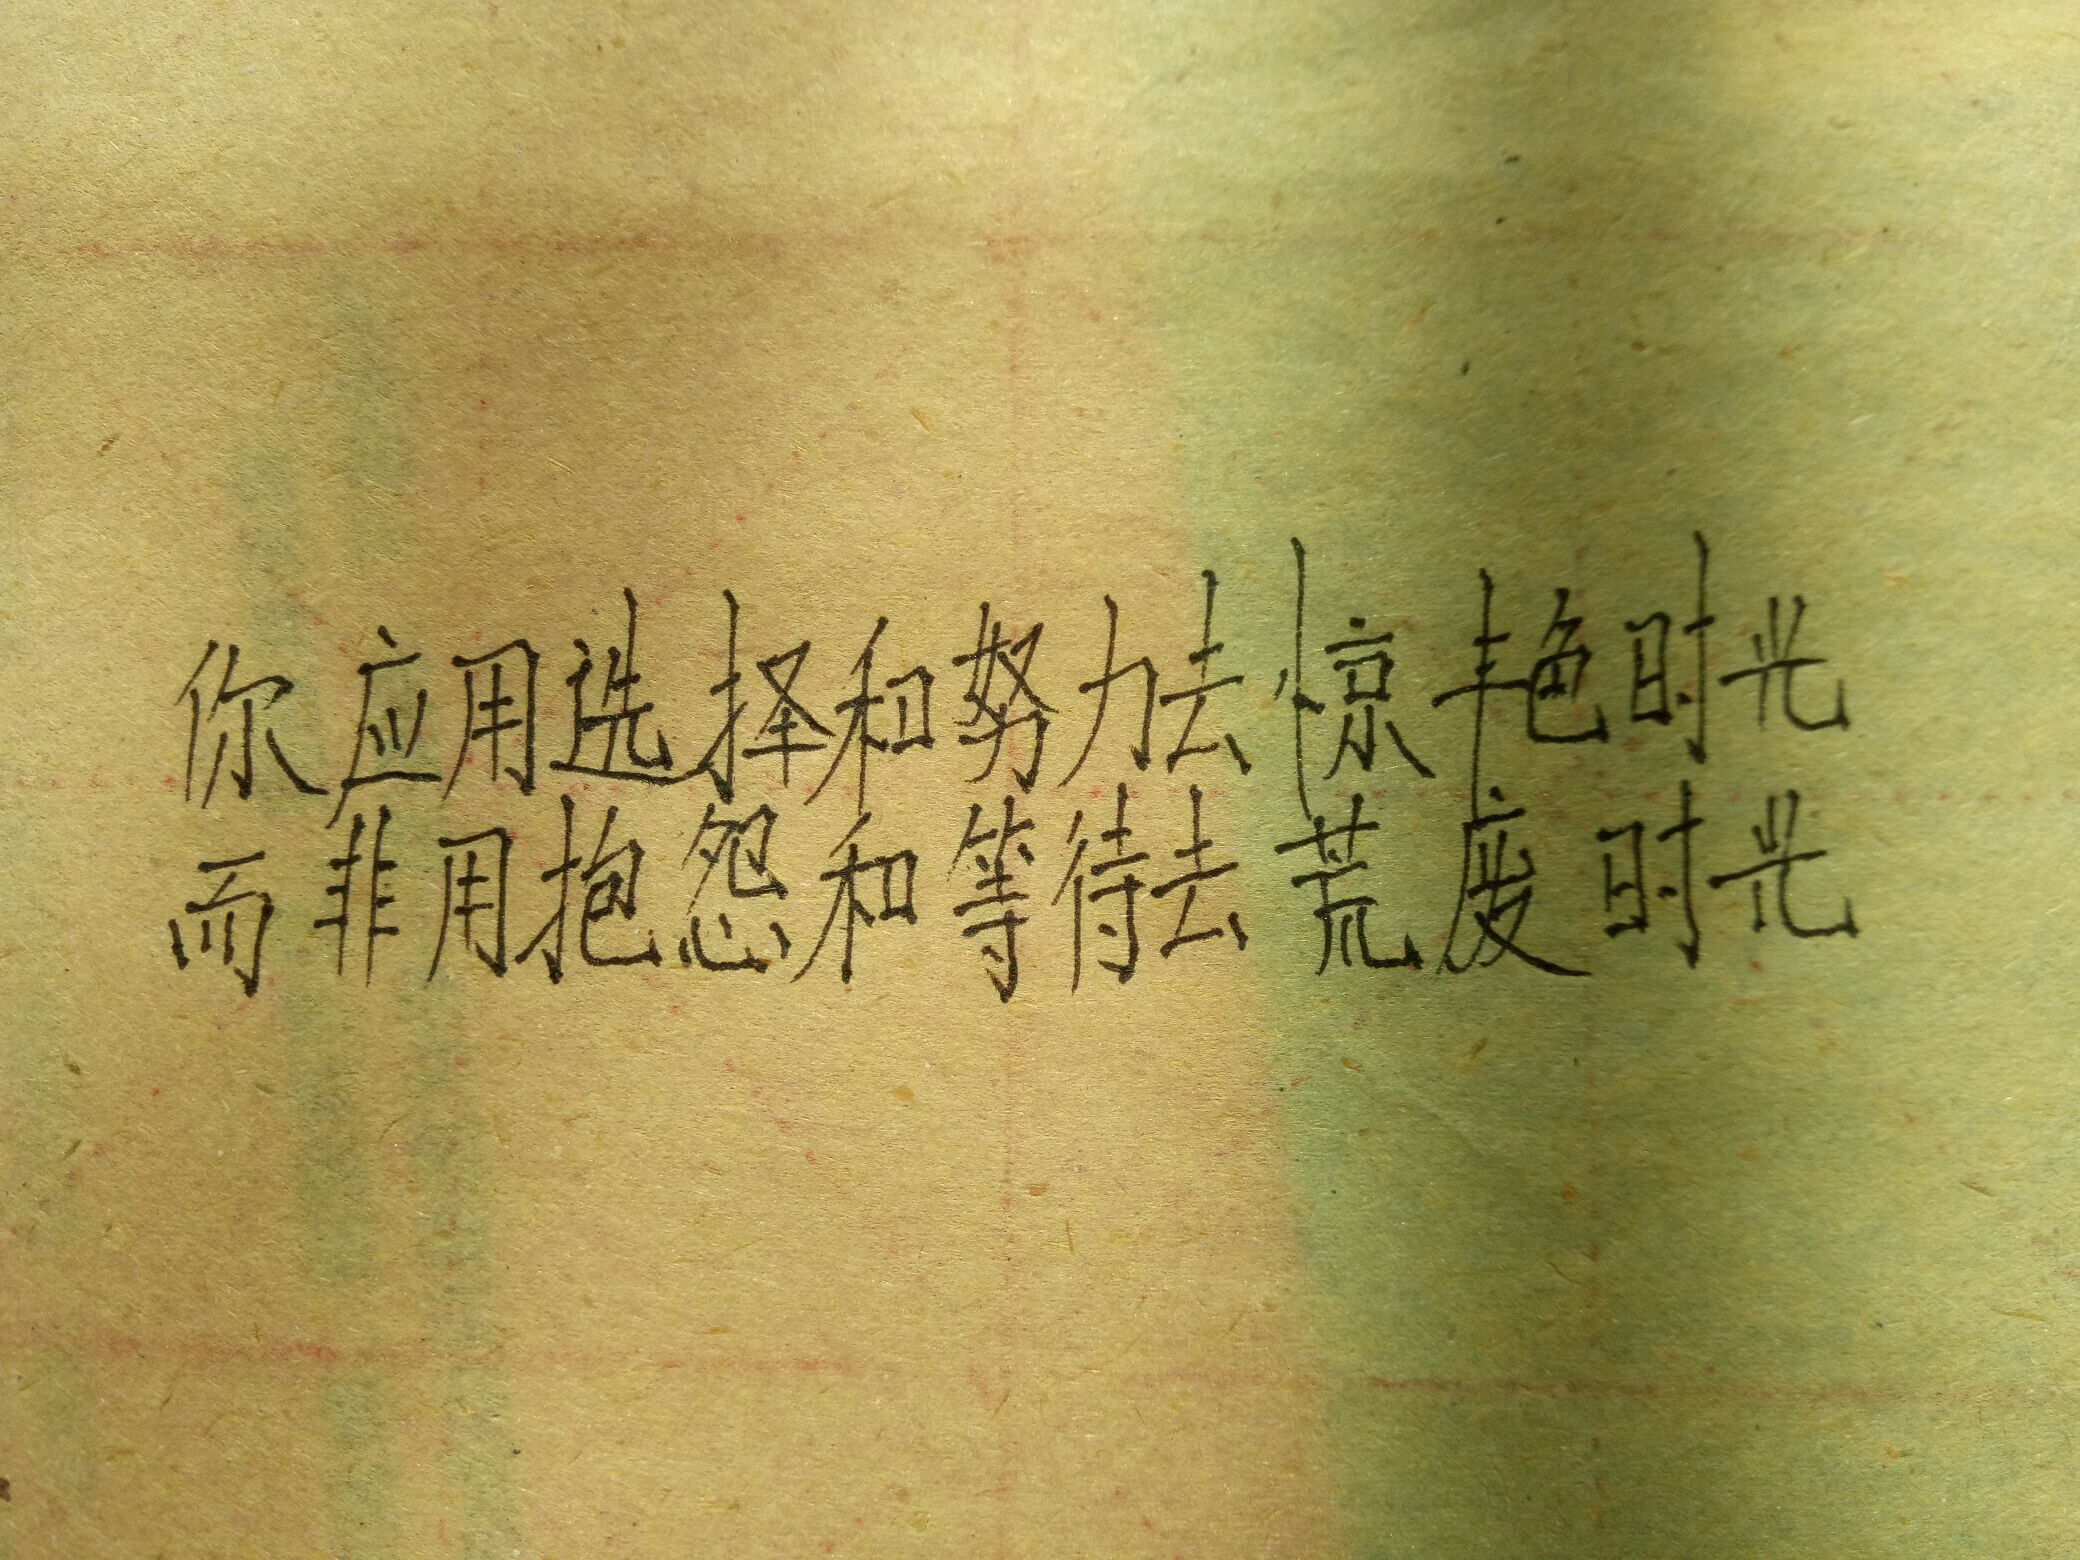 你应用选择和努力去惊艳时光
而非用抱怨和等待去荒度时光